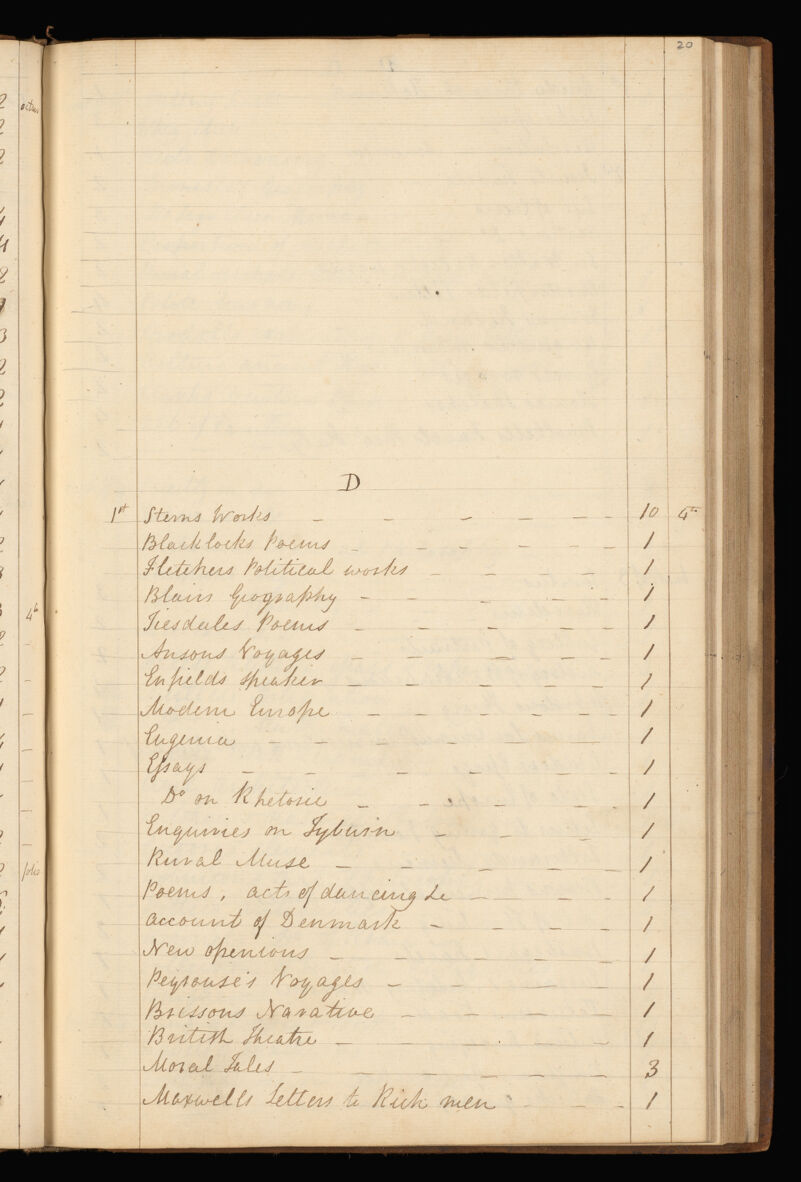 20
D
1st Sterns Works - - - - - 10 4to
Blacklocks Poems - - - - - 1
Fletchers Political works - - - - 1
Blairs Geography - - - - - 1
Tiesdales Poems - - - - - 1
Ansons Voyages - - - - - 1
Enfields Speaker - - - - - 1
Modern Europe - - - - - 1
Eugenia - - - - - - 1
Essays - - - - - - 1
Do on Rhetoric - - - - - 1
Enquiries on Tyburn - - - - 1
Rural Muse - - - - - 1
Poems, acts of dancing &c - - - 1
account of Denmark - - - - 1
New openions - - - - - 1
Peyrouse's Voyages - - - - 1
Brissons Narative - - - - 1
British Theatre - - - - - 1
Moral Tales - - - - - - 3
Maxwells Letters to Rich men - - - 1